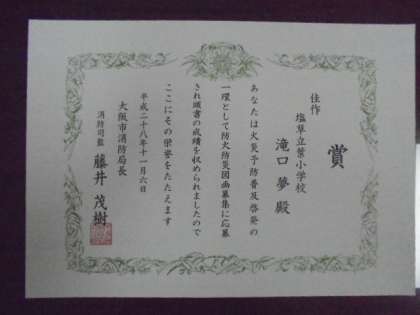 賞
佳作
塩草立葉小学校
滝口 夢 殿
あなたは火災予防普及啓発の
一環として防火防災図画募集に応募
され頭書の成績を収められましたので
ここにその栄誉をたたえます
平成二十八年十一月六日
大阪市消防局長
消防司監 藤井茂樹